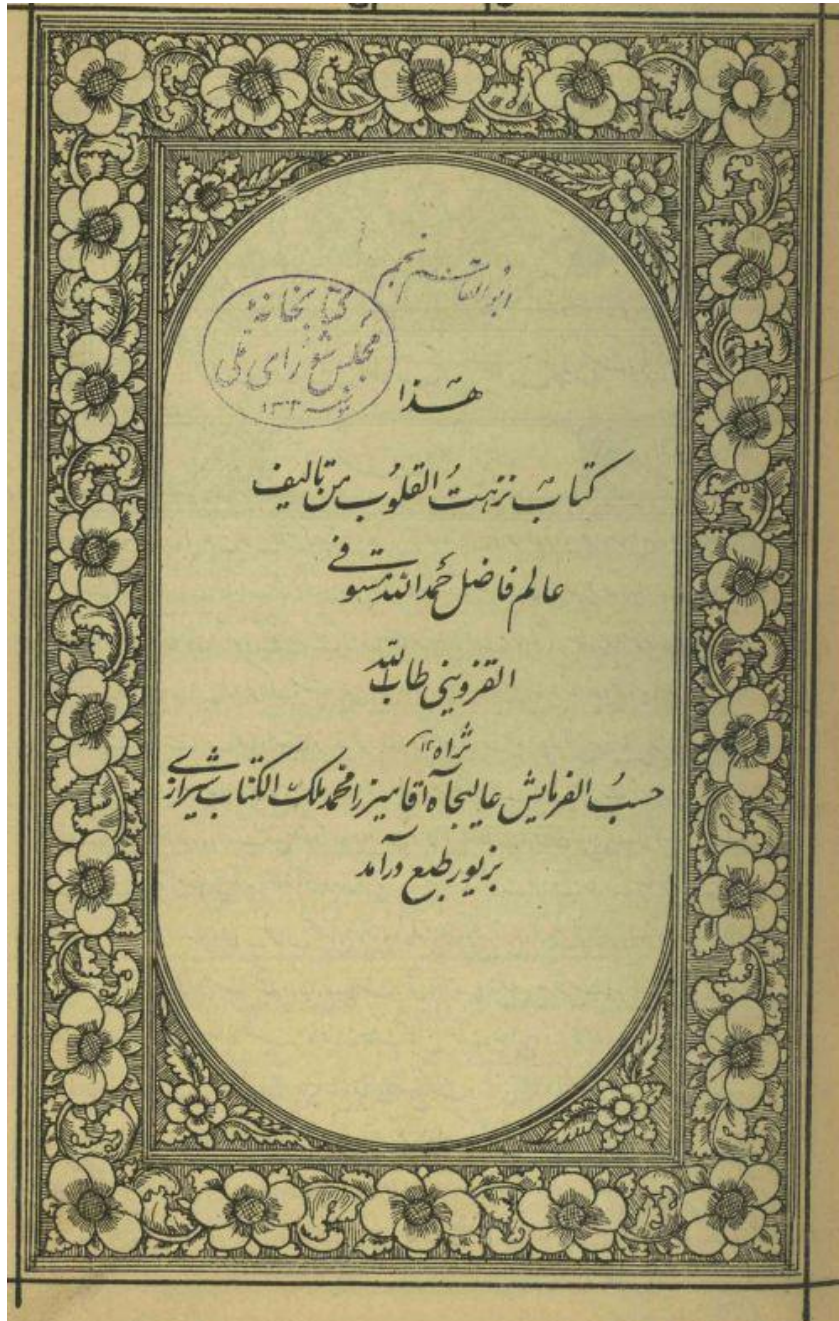 ابوالقاسم نجم
کتابخانهٔ
مجلس شورای ملی
هذا
کتاب نزهت القلوب من تالیف
عالم فاضل حمدالله مستوفی
القزوینی طاب الله
ثراه ۱۲
حسب الفرمایش عالیجاه آقا میرزا محمد ملک الکتاب شیرازی
بزیور طبع درآمد